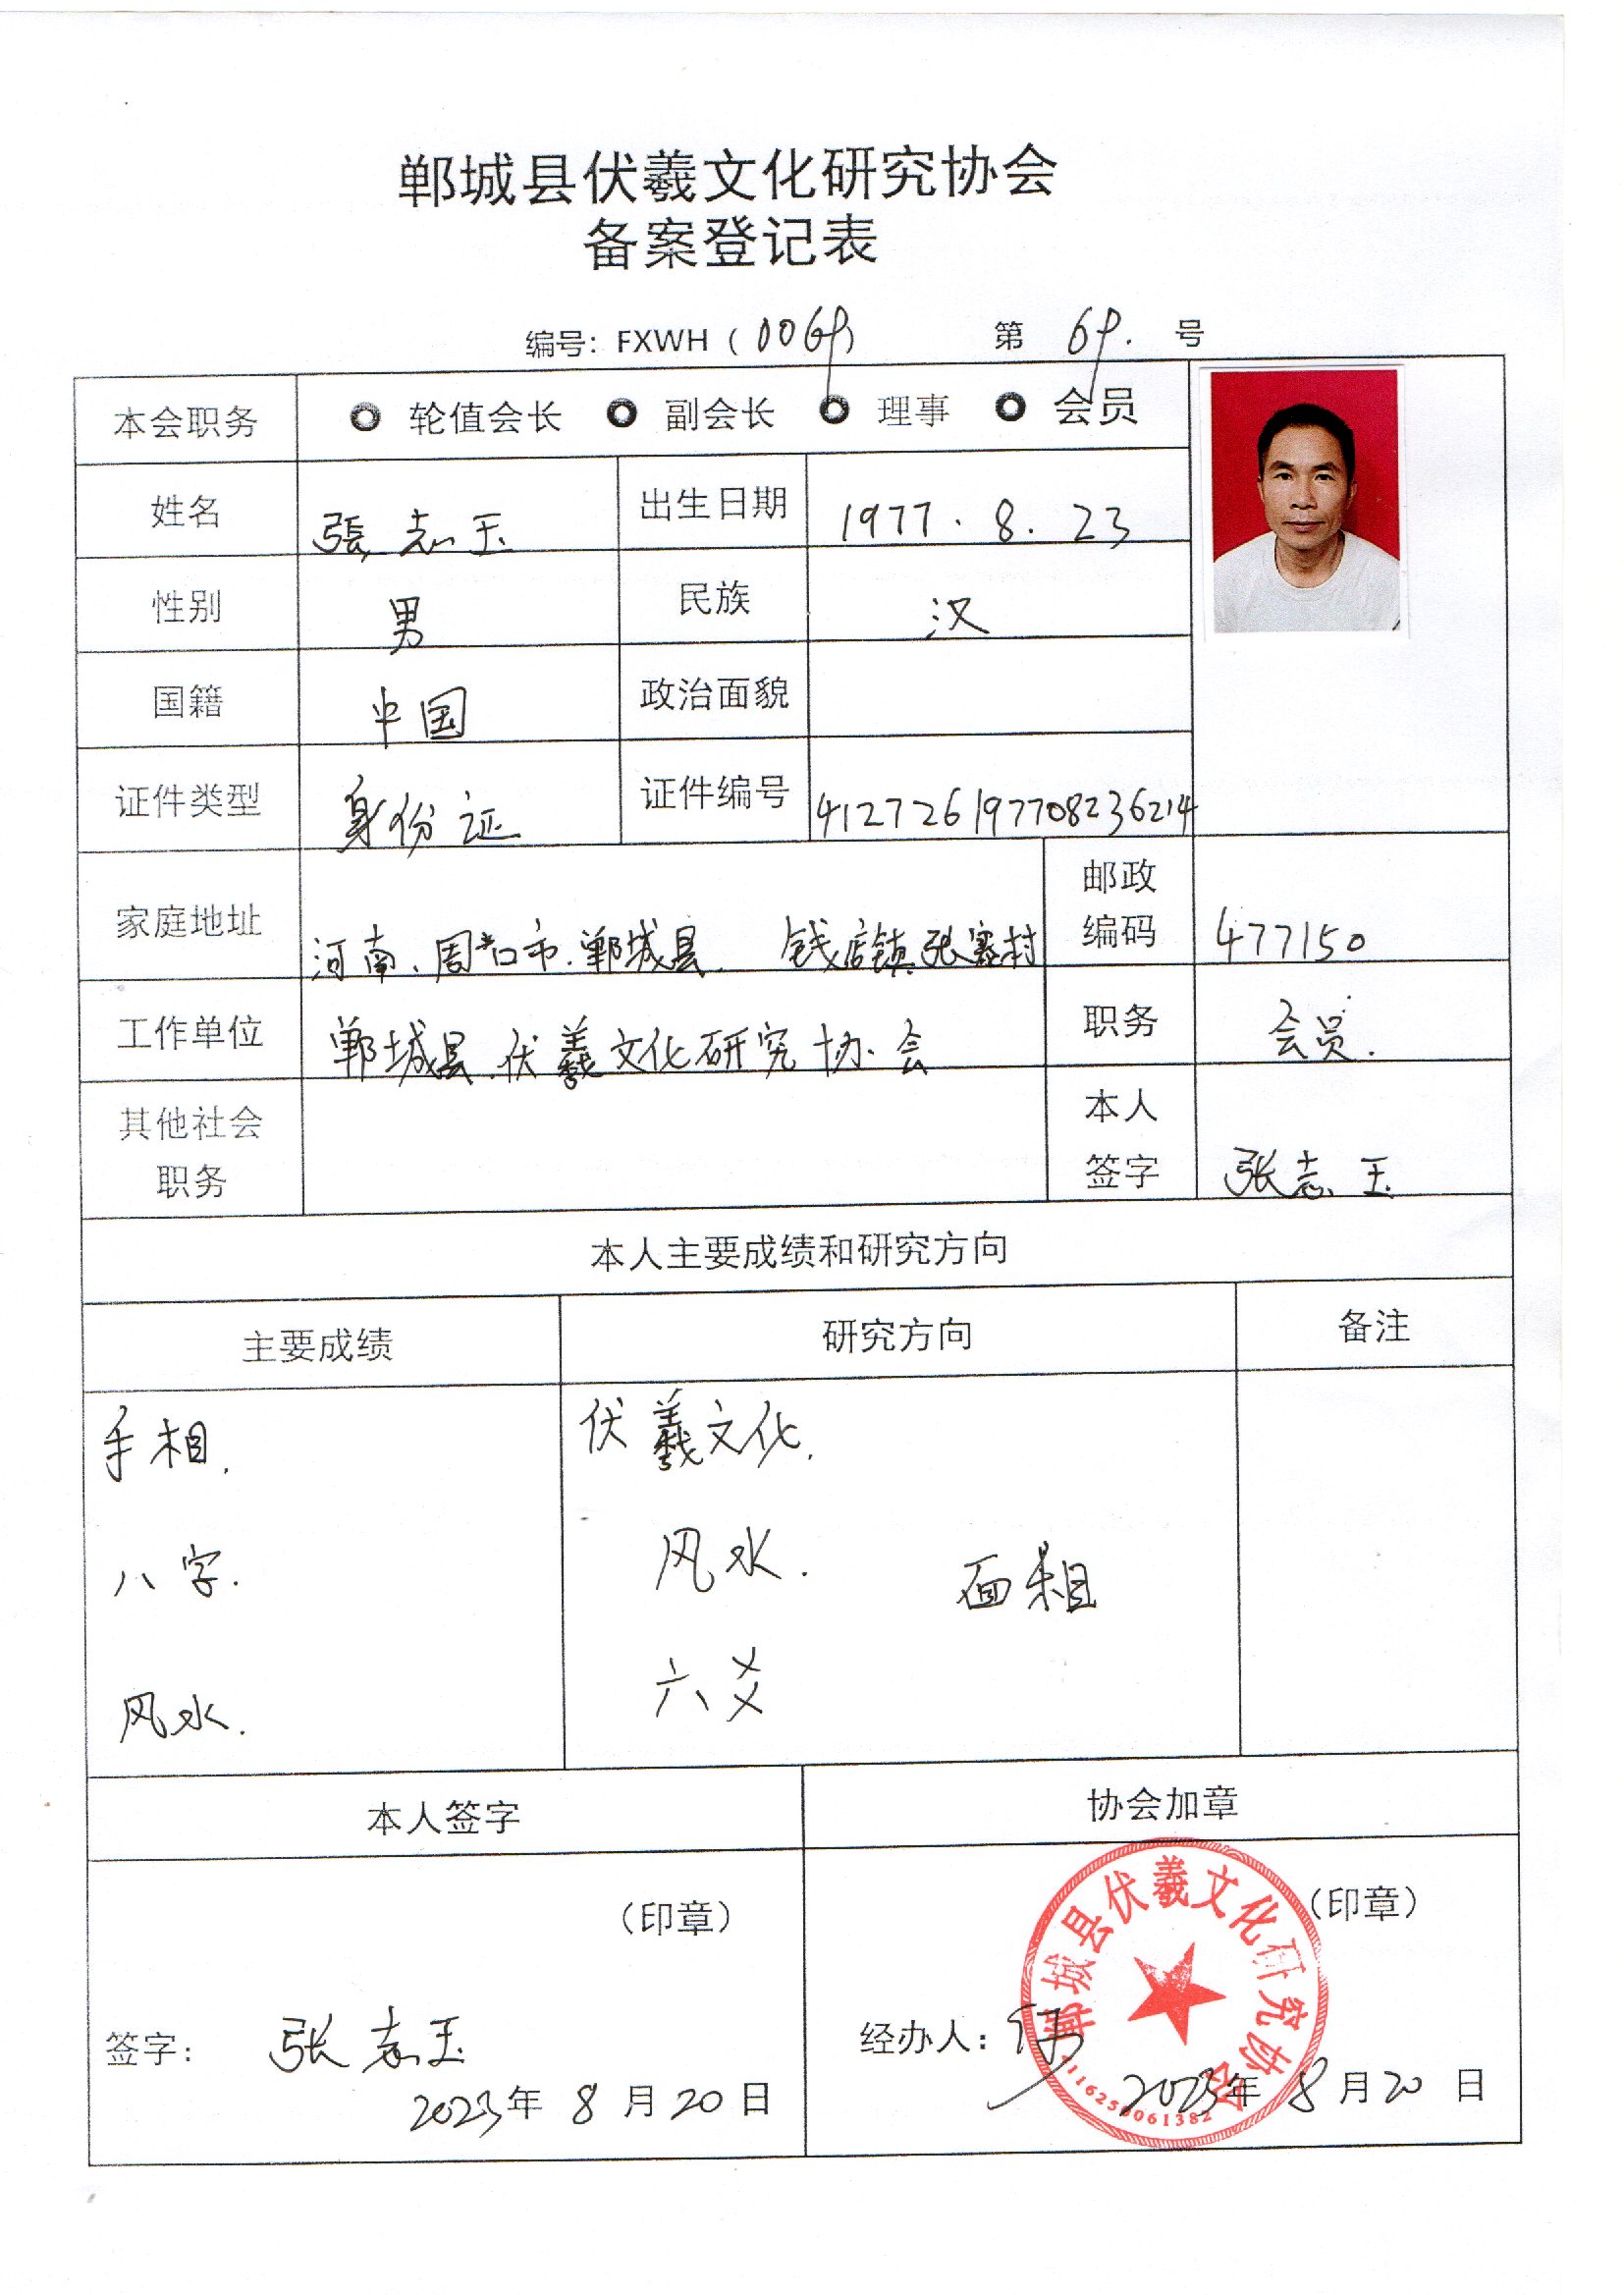 郸城县伏羲文化研究协会
备案登记表
编号：FXWH（0069） 第 69. 号
本会职务 轮值会长 副会长 理事 会员
姓名 張志玉 出生日期 1977.8.23
性别 男 民族 汉
国籍 中国 政治面貌
证件类型 身份证 证件编号 412726197708236214
家庭地址 河南.周口市.郸城县. 钱店镇张寨村 邮政编码 477150
工作单位 郸城县伏羲文化研究协会 职务 会员.
其他社会职务 本人签字 张志玉
本人主要成绩和研究方向
主要成绩 研究方向 备注
手相. 伏羲文化.
八字. 风水. 面相
风水. 六爻
本人签字 协会加章
（印章） （印章）
郸城县伏羲文化研究协会
签字： 张志玉 经办人：
2023年 8月20日 2023年 8月20日